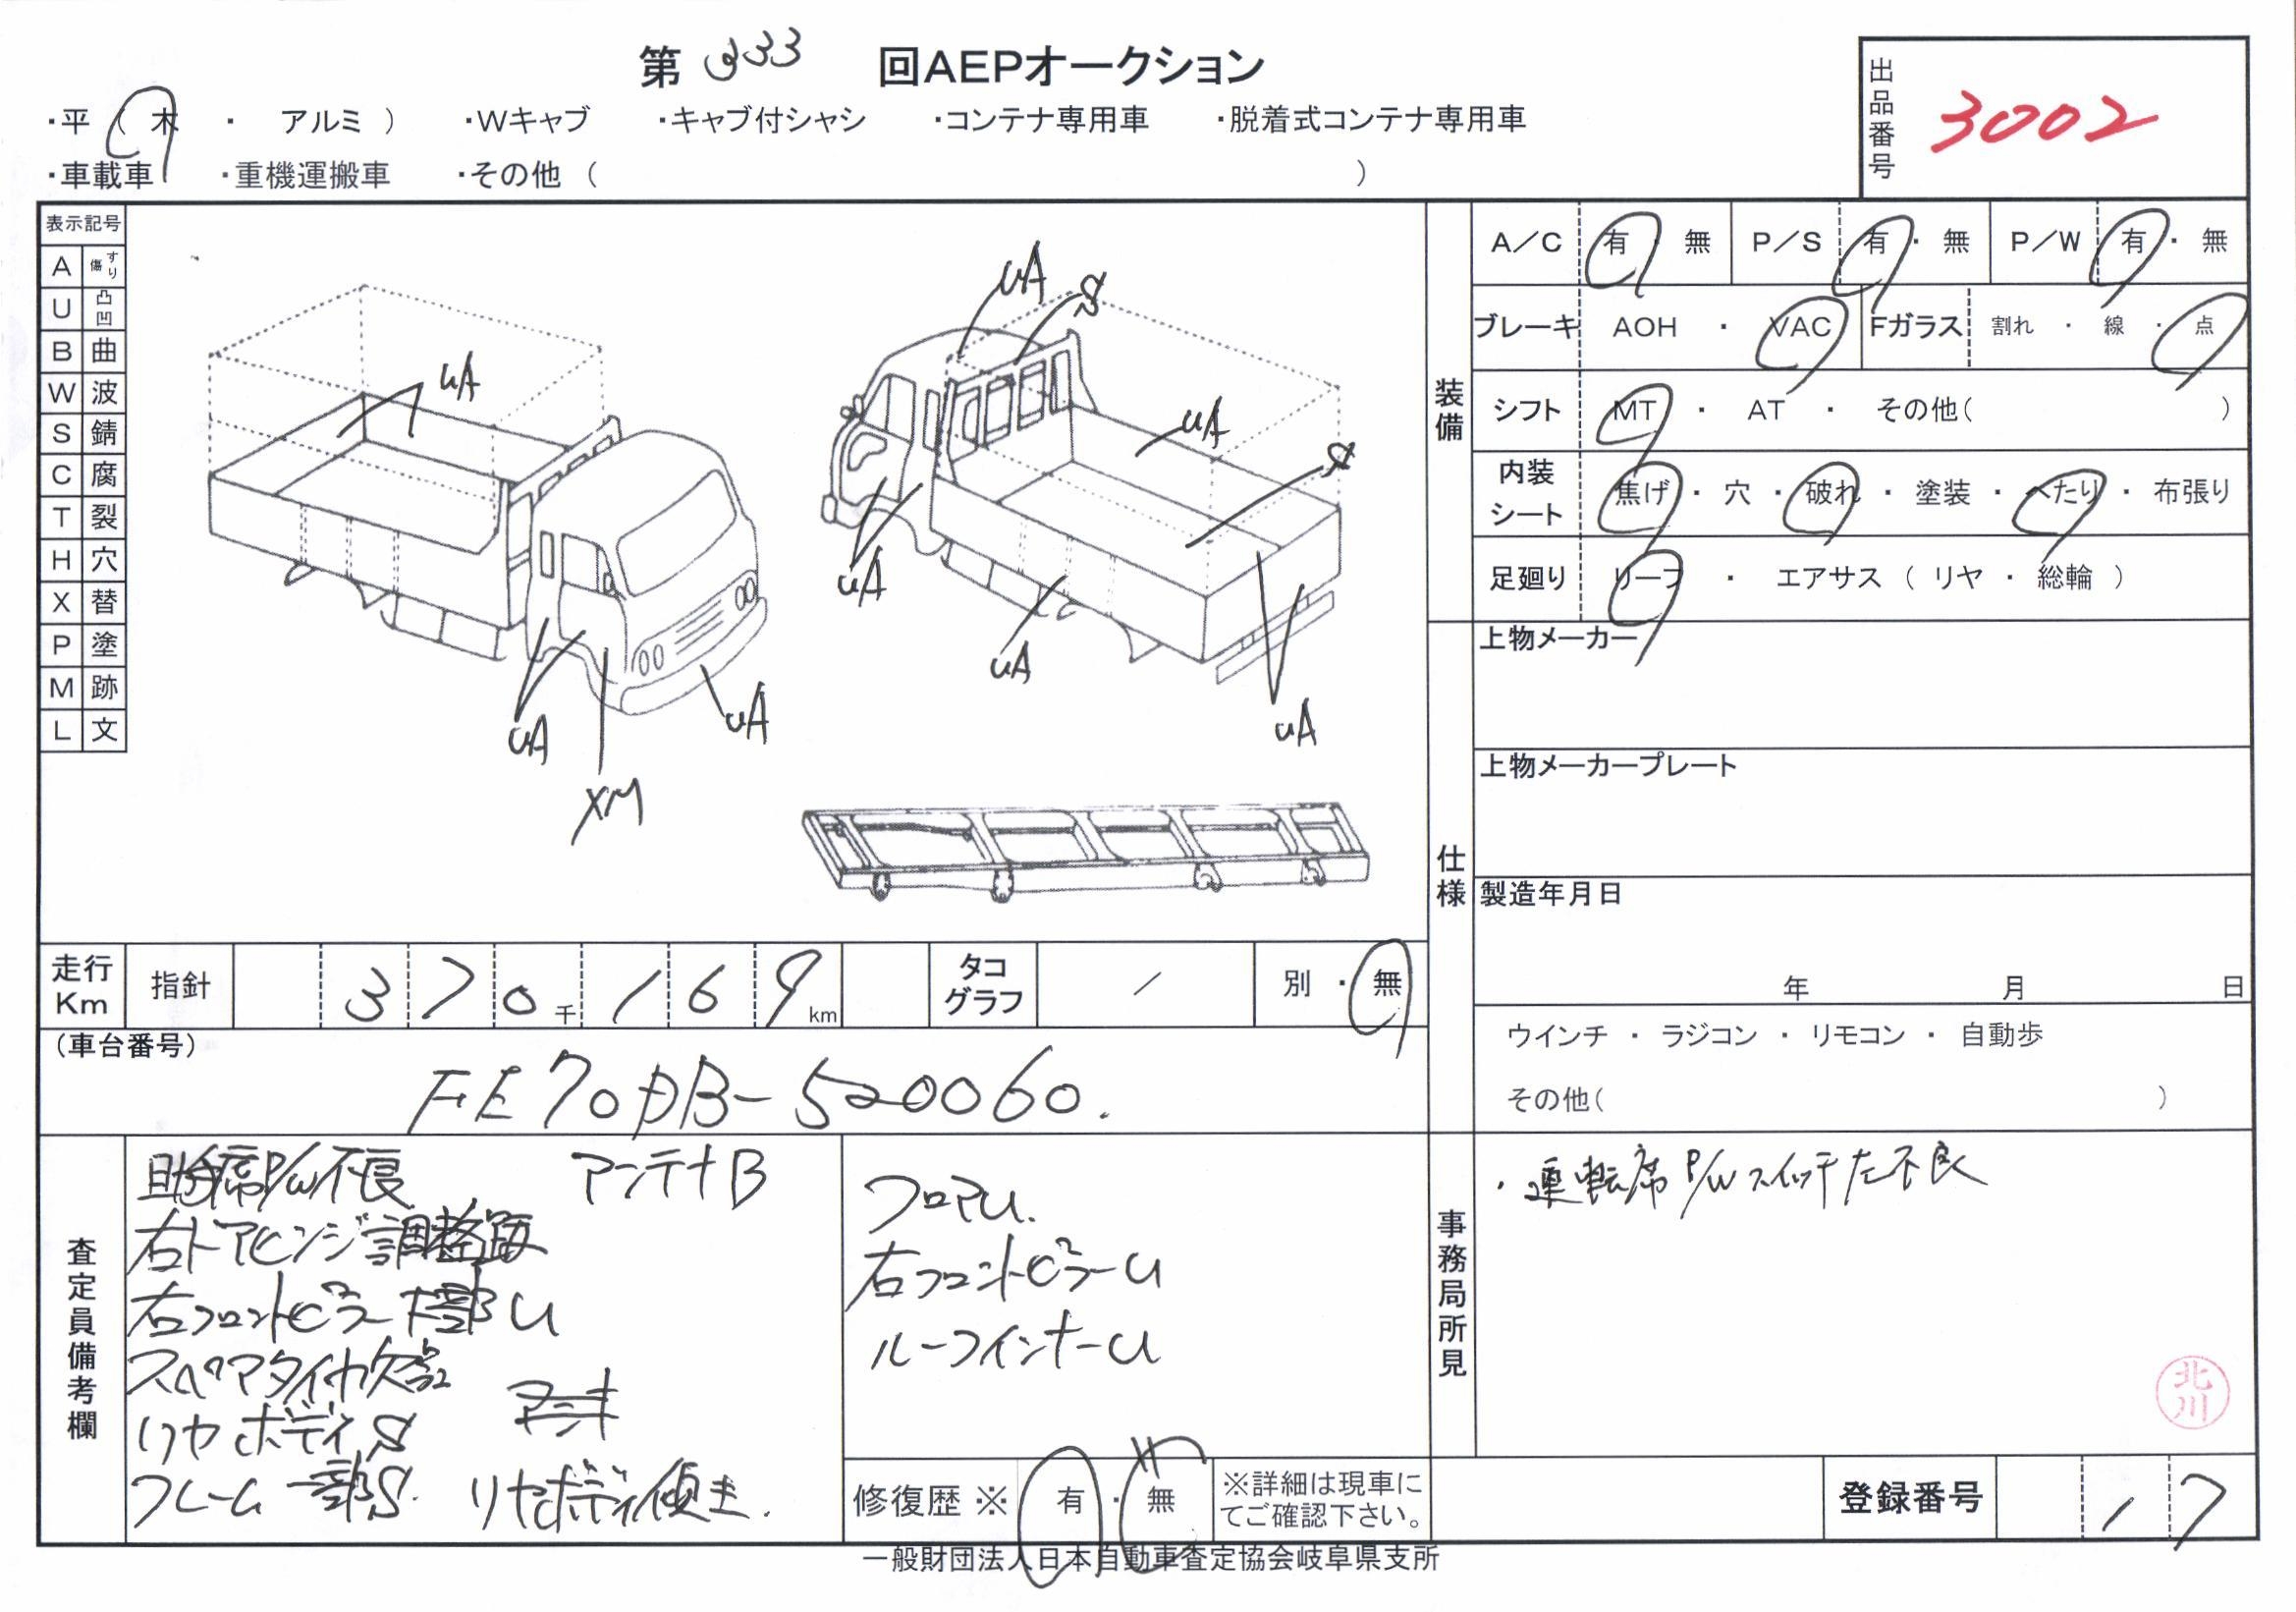 第 333 回AEPオークション
・平 ( 木 ・ アルミ ) ・Wキャブ ・キャブ付シャシ ・コンテナ専用車 ・脱着式コンテナ専用車
・車載車 ・重機運搬車 ・その他 ( )
出品番号 3002
表示記号
A すり傷
U 凸凹
B 曲
W 波
S 錆
C 腐
T 裂
H 穴
X 替
P 塗
M 跡
L 文
uA
uA
XM
uA
uA
S
uA
S
uA
uA
uA
装備
A/C 有・無 P/S 有・無 P/W 有・無
ブレーキ AOH ・ VAC Fガラス 割れ ・ 線 ・ 点
シフト MT ・ AT ・ その他( )
内装シート 焦げ ・ 穴 ・ 破れ ・ 塗装 ・ へたり ・ 布張り
足廻り リーフ ・ エアサス ( リヤ ・ 総輪 )
仕様
上物メーカー
上物メーカープレート
製造年月日
年 月 日
ウインチ ・ ラジコン ・ リモコン ・ 自動歩
その他( )
走行Km 指針 370千169km タコグラフ / 別・無
(車台番号)
FE70DB-520060.
査定員備考欄
助席P/W不良 アンテナB
右ドアヒンジ調整跡
右フロントピラー下部U
スペアタイヤ欠
リヤボディS
フレーム一部S. リヤボディ傾き.
フロアU.
右フロントピラーU
ルーフインナーU
修復歴 ※ 有・無 ※詳細は現車にてご確認下さい。
事務局所見
・運転席P/Wスイッチ左不良
北川
登録番号 17
一般財団法人日本自動車査定協会岐阜県支所